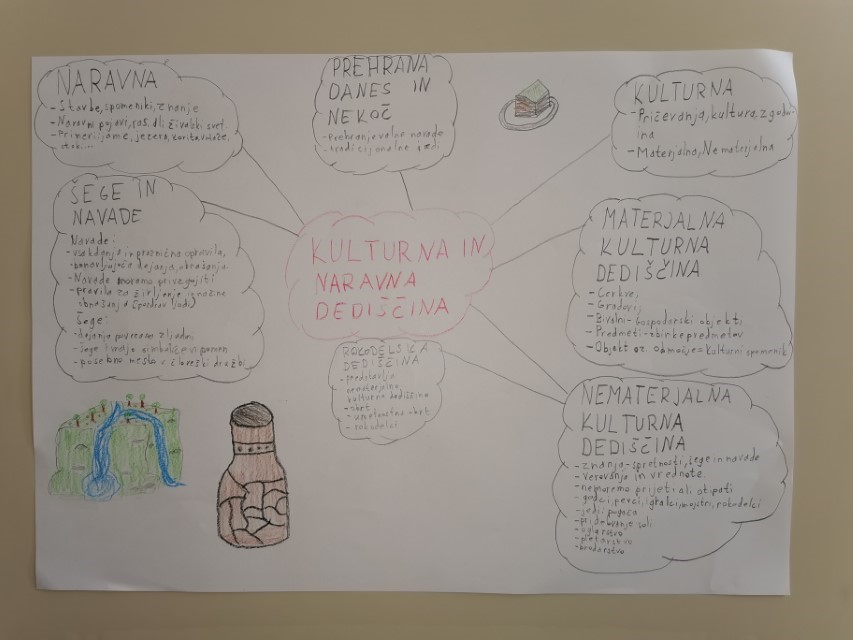 NARAVNA
- Stavbe, spomeniki, znanje
- Naravni pojavi, ras. ali živalski svet.
- Primeri: jame, jezera,
PREHRANA
DANES IN
NEKOČ
- Prehranjevalne navade
- tradicijonalne jedi
KULTURNA
- Pričevanja, kultura, zgodo
ina
- Materjalna, Nematrijalna
ŠEGE IN
NAVADE
Navade:
- vsakdanja in praznična opravila,
- ponavljajoča dejanja, obnašanja.
- Navade moramo privzgojiti
- pravila za življenje in načine
obnašanja (pozdrav ljudi)
Šege:
- dejanja povezana z ljudmi
- šege imajo simboličen pomen
- posebno mesto v človeški družbi
KULTURNA IN
NARAVNA
DEDIŠČINA
MATERJALNA
KULTURNA
DEDIŠČINA
- Cerkve,
- Gradovi,
- Bivalni- gospodarski objekti
- Predmeti- zbirke predmetov
- Objekt oz. območje = kulturni spomenik
ROKODELSKA
DEDIŠČINA
- predstavlja
nematerjalno
kulturno dediščino
- obrt
- umetnostna obrt
- rokodelci
NEMATERJALNA
KULTURNA
DEDIŠČINA
- znanja- spretnosti, šege in navade
- Verovanja in vrednote.
- nemoremo prijeti ali otipati
- godci, pevci, igralci, mojstri, rokodelci
- jedi: pogača
- pridebovanje soli
- oglarstvo
- pletarstvo
- brodarstvo